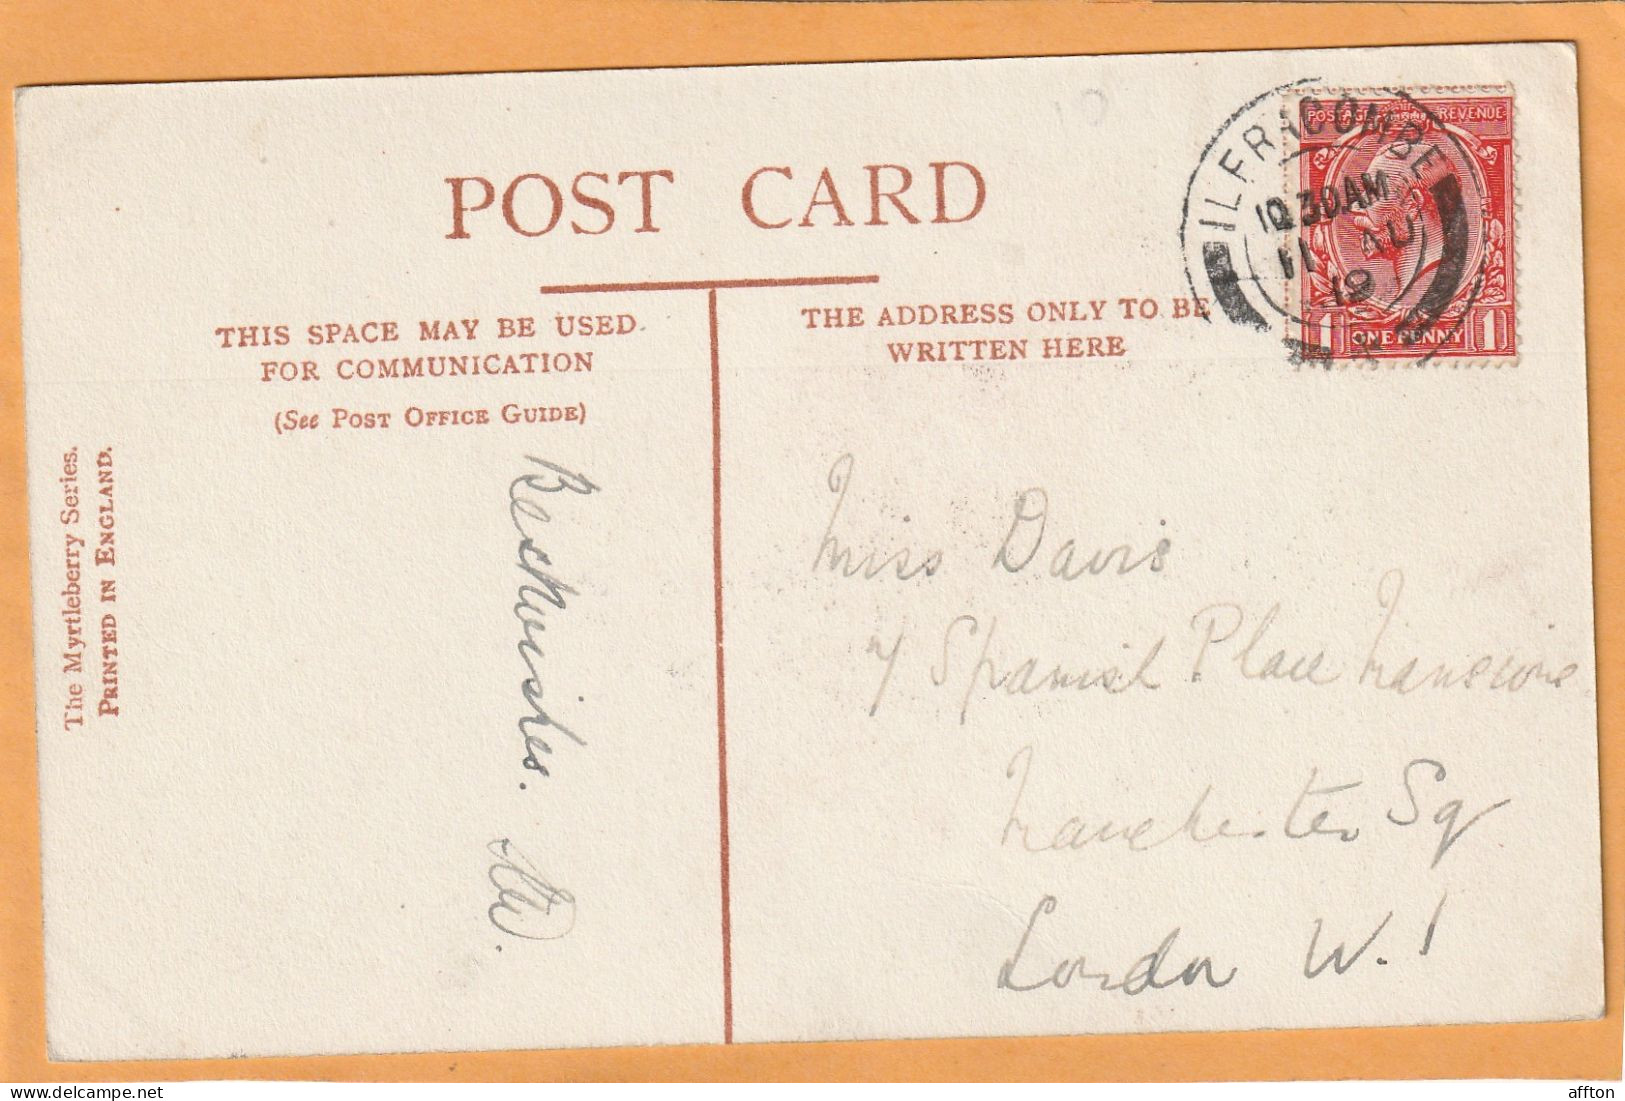 POST CARD
THIS SPACE MAY BE USED
FOR COMMUNICATION
(See POST OFFICE GUIDE)
THE ADDRESS ONLY TO BE
WRITTEN HERE
ILFRACOMBE
10.30AM
11 AU
19
POSTAGE REVENUE
1 ONE PENNY 1
The Myrtleberry Series.
PRINTED IN ENGLAND.
Best wishes.
Miss Davis
7 Spanish Place Mansions
Manchester Sq
London W.1
affton